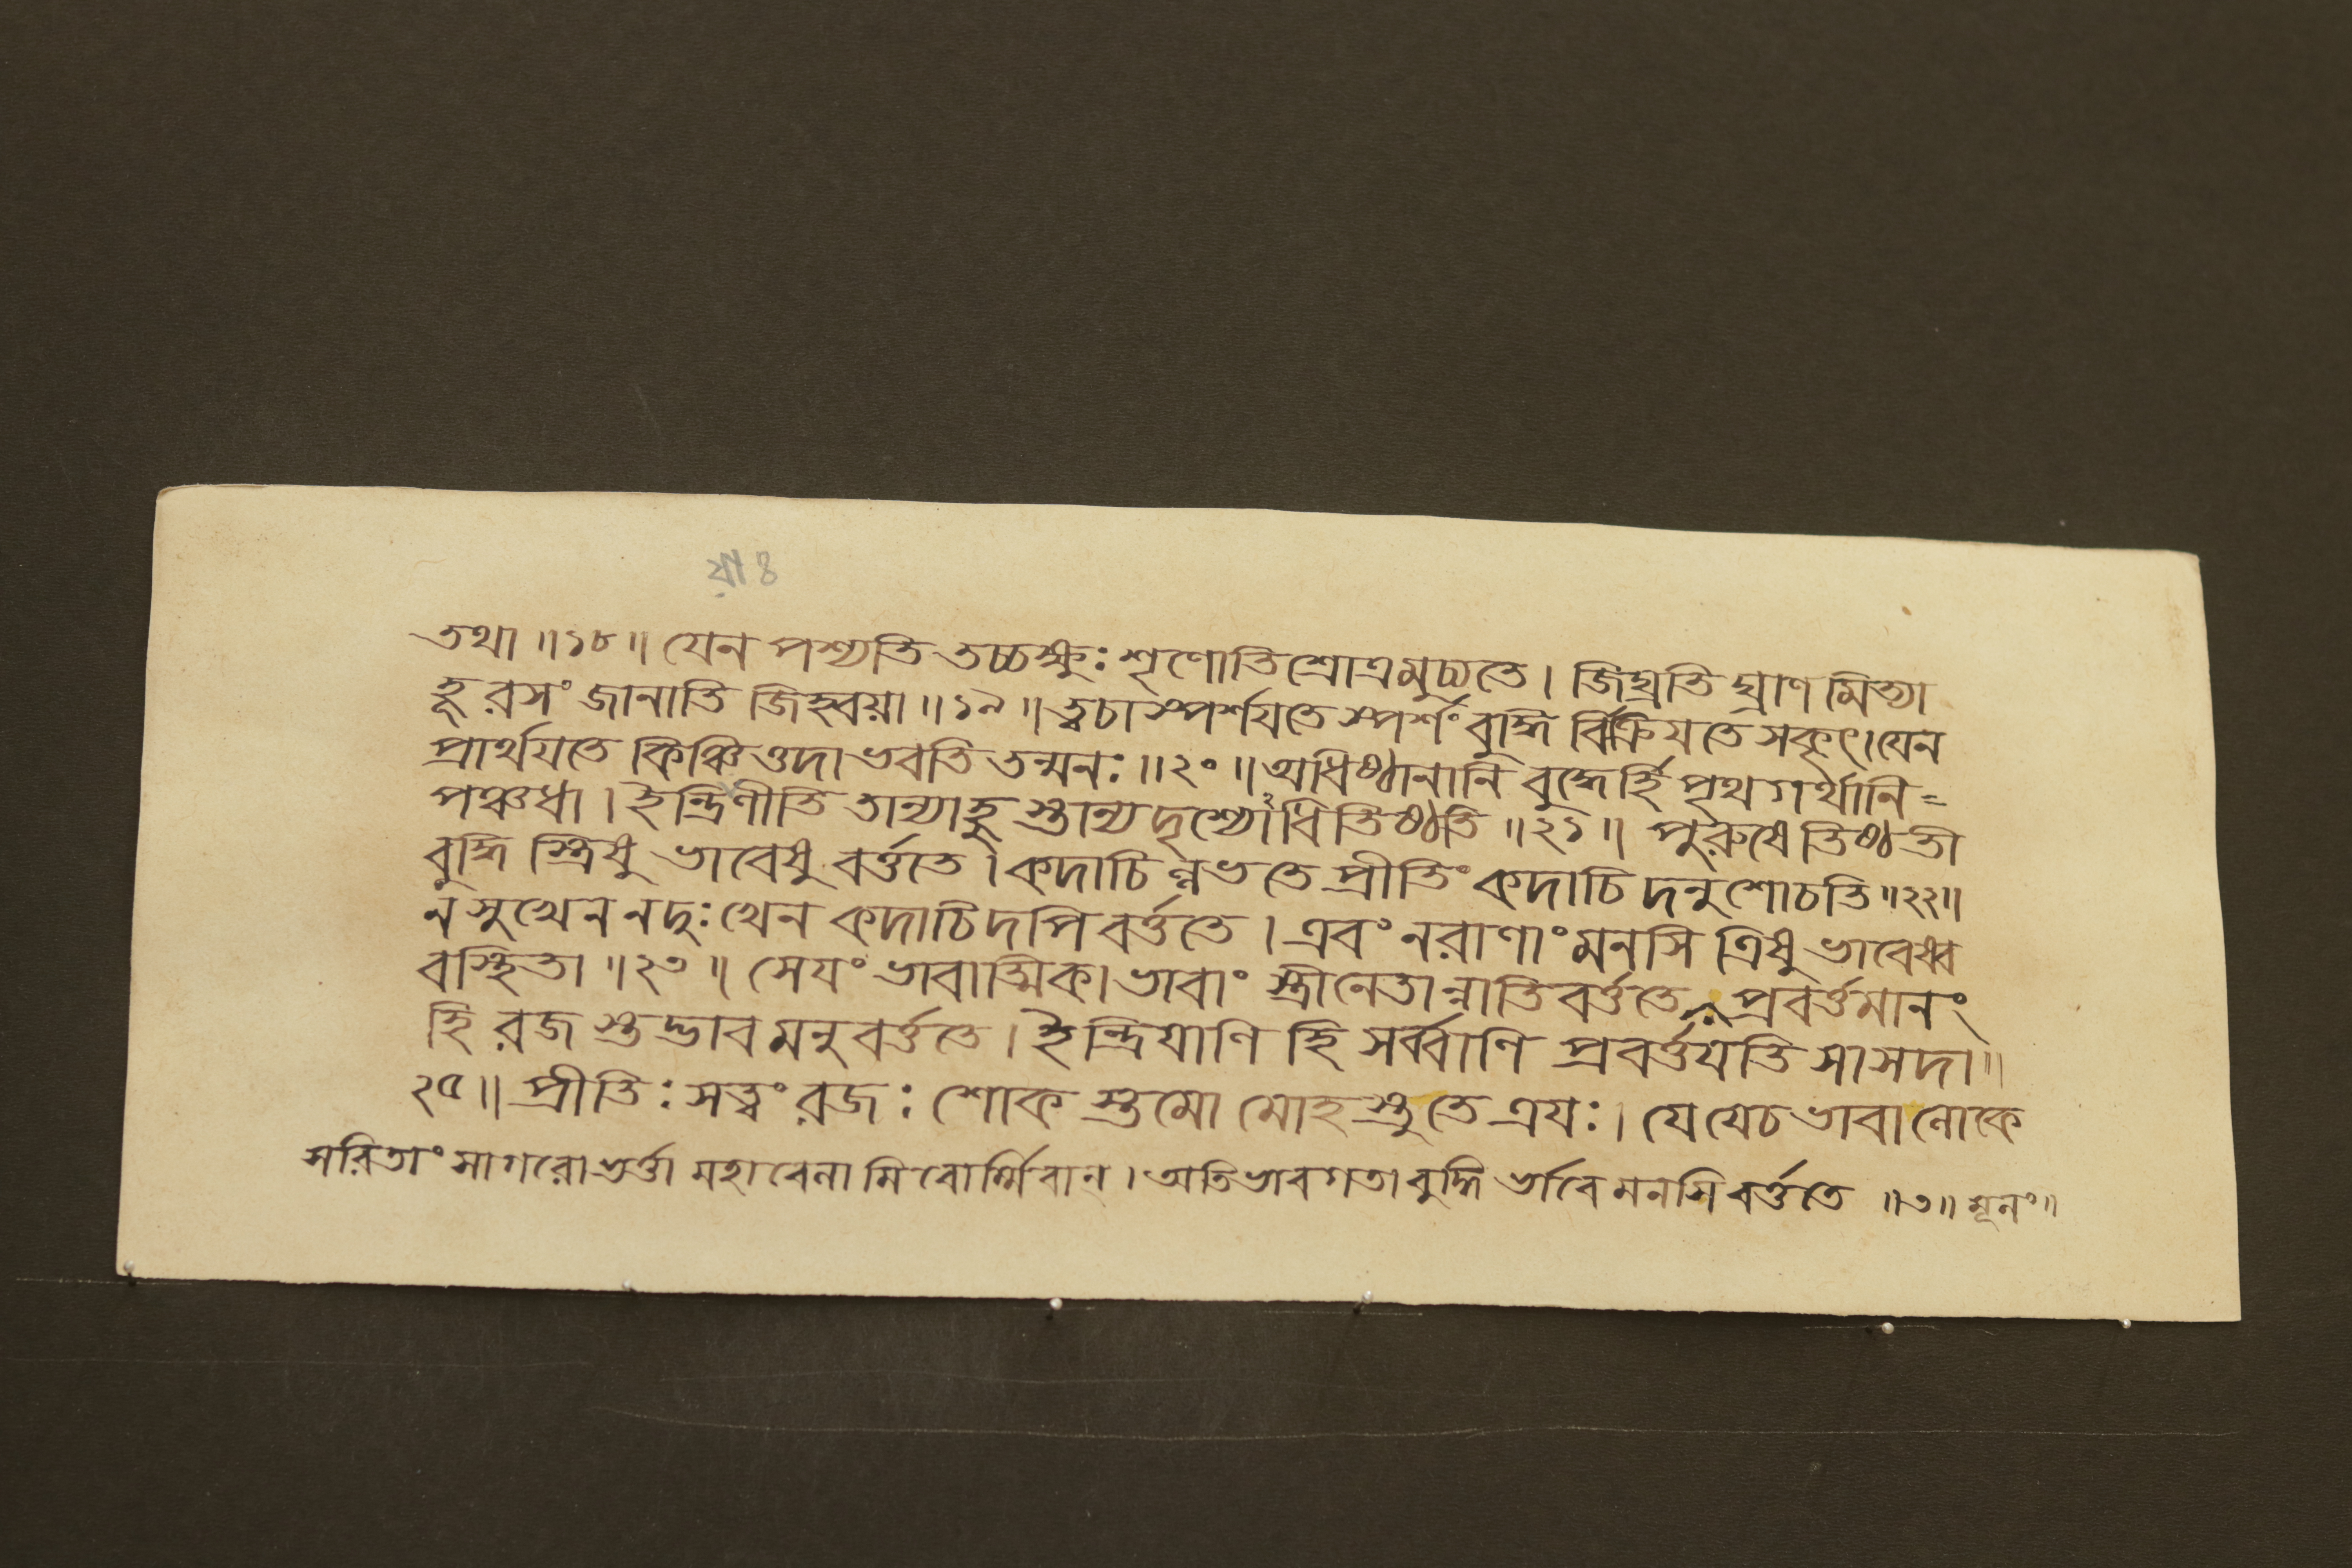 য়া ৪
তথা ॥ ১৮ ॥ যেন পশ্যতি তচ্চক্ষুঃ শৃণোতি শ্রোত্রমুচ্যতে । জিঘ্রতি ঘ্রাণ মিত্যা
হূ রসং জানাতি জিহ্বয়া ॥ ১৯ ॥ ত্বচা স্পর্শযতে স্পর্শং বুদ্ধি র্বিক্রিযতে সকৃৎ । যেন
প্রার্থযতে কিঞ্চিত্তদা ভবতি তন্মনঃ ॥ ২০ ॥ অধিষ্ঠানানি বুদ্ধের্হি পৃথগর্থানি =
পঞ্চধা । ইন্দ্রিণীতি তান্যাহু স্তান্যদৃশ্যোঽধিতিষ্ঠতি ॥ ২১ ॥ পুরুষে তিষ্ঠতী
বুদ্ধি স্ত্রিষু ভাবেষু বর্ত্ততে । কদাচি ল্লভতে প্রীতিং কদাচি দনুশোচতি ॥ ২২ ॥
ন সুখেন ন দুঃখেন কদাচিদপি বর্ত্ততে । এবং নরাণাং মনসি ত্রিষু ভাবেষ্ব
বস্থিতা ॥ ২৩ ॥ সেযং ভাবাত্মিকা ভাবাং স্ত্রীনেতান্নাতিবর্ত্ততে প্রবর্ত্তমানং
হি রজ স্তদ্ভাব মনুবর্ত্ততে । ইন্দ্রিযাণি হি সর্ব্বাণি প্রবর্ত্তযতি সা সদা ॥
২৫ ॥ প্রীতিঃ সত্ত্বং রজঃ শোক স্তমো মোহ স্তু তে ত্রযঃ । যে যে চ ভাবা লোকে
সরিতাং সাগরো ভর্ত্তা মহাবেলা মি বোর্ম্মিবান্ । অতিভাবগতা বুদ্ধি র্ভাবে মনসি বর্ত্ততে ॥ ৩ ॥ মূলং ॥